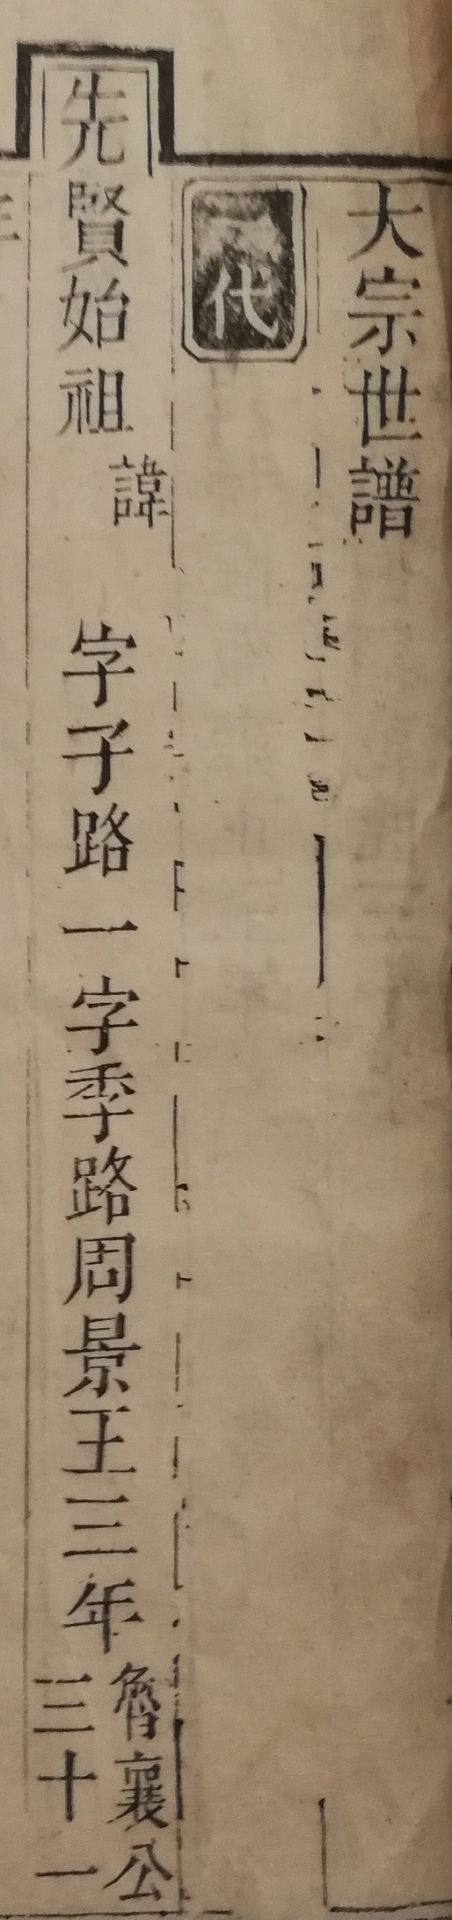 大宗世譜
一代
先賢始祖諱 字子路一字季路周景王三年魯襄公
三十一